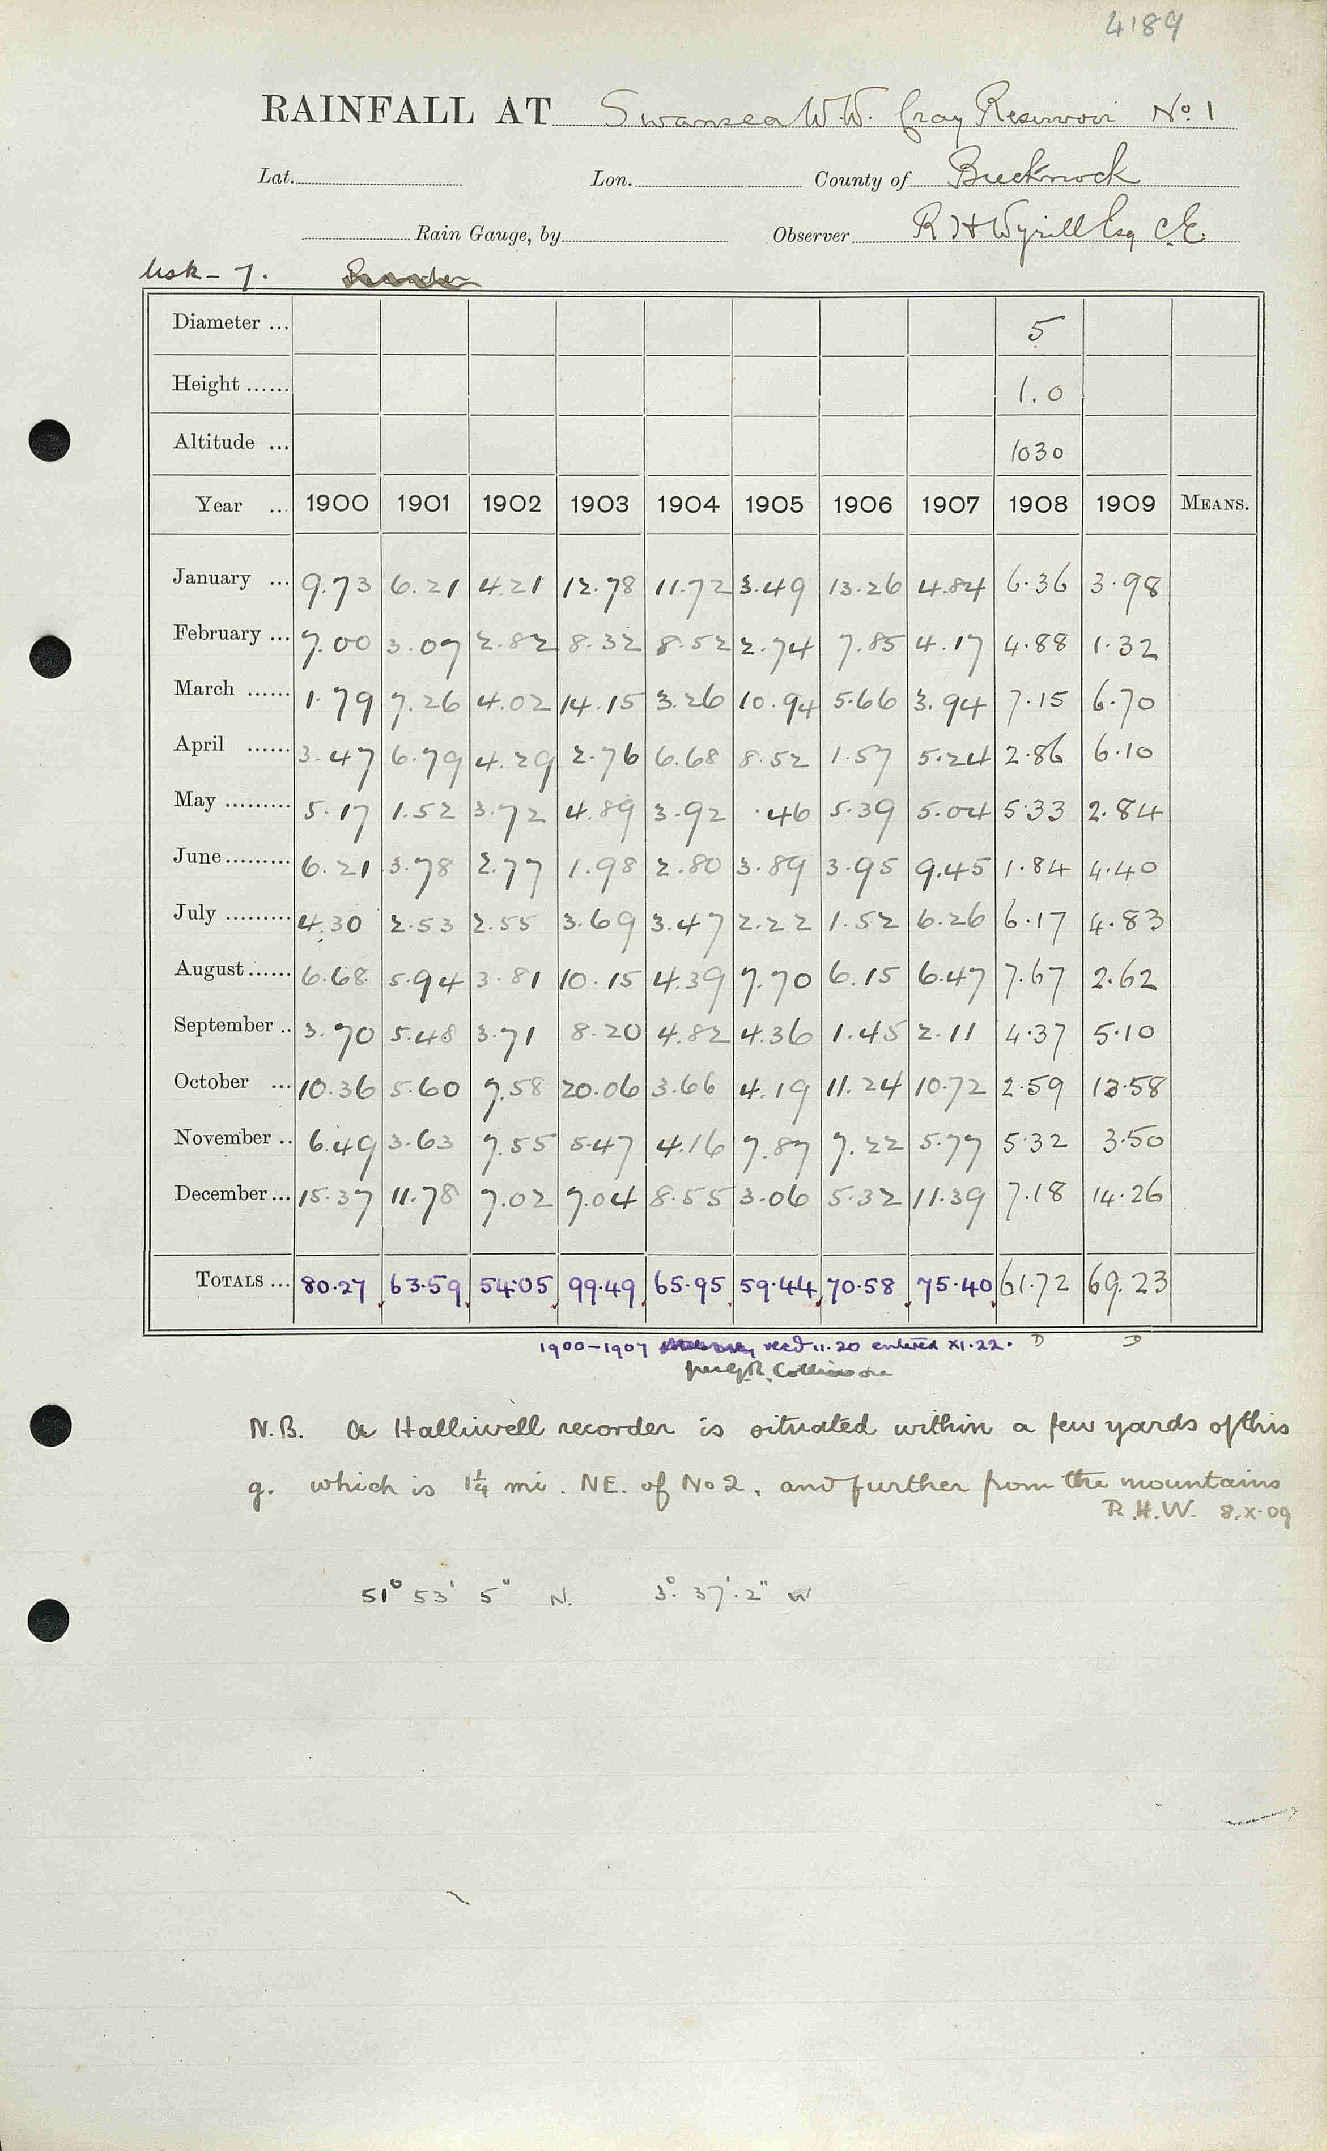 4189
RAINFALL AT Swansea W.W. Cray Reservoir No. 1
Lat. Lon. County of Brecknock
Rain Gauge, by Observer R H Wyrill Esq C.E.
Usk - 7.
Diameter ... 5
Height ...... 1.0
Altitude ... 1030
Year ... 1900 1901 1902 1903 1904 1905 1906 1907 1908 1909 MEANS.
January ... 9.73 6.21 4.21 12.78 11.72 3.49 13.26 4.84 6.36 3.98
February ... 7.00 3.07 2.82 8.32 8.52 2.74 7.85 4.17 4.88 1.32
March ...... 1.79 7.26 4.02 14.15 3.26 10.94 5.66 3.94 7.15 6.70
April ...... 3.47 6.79 4.29 2.76 6.68 8.52 1.57 5.24 2.86 6.10
May ......... 5.17 1.52 3.72 4.89 3.92 .46 5.39 5.04 5.33 2.84
June ......... 6.21 3.78 2.77 1.98 2.80 3.89 3.95 9.45 1.84 4.40
July ......... 4.30 2.53 2.55 3.69 3.47 2.22 1.52 6.26 6.17 4.83
August ...... 6.68 5.94 3.81 10.15 4.39 7.70 6.15 6.47 7.67 2.62
September .. 3.70 5.48 3.71 8.20 4.82 4.36 1.45 2.11 4.37 5.10
October ... 10.36 5.60 7.58 20.06 3.66 4.19 11.24 10.72 2.59 13.58
November .. 6.49 3.63 7.55 5.47 4.16 7.87 7.22 5.77 5.32 3.50
December ... 15.37 11.78 7.02 7.04 8.55 3.06 5.32 11.39 7.18 14.26
TOTALS ... 80.27 63.59 54.05 99.49 65.95 59.44 70.58 75.40 61.72 69.23
1900-1907 recd 11.20 entered XI.22. D D
N.B. A Halliwell recorder is situated within a few yards of this
g. which is 1¼ mi. NE. of No 2. and further from the mountains
R.H.W. 8.X.09
51° 53' 5" N. 3° 37' 2" W